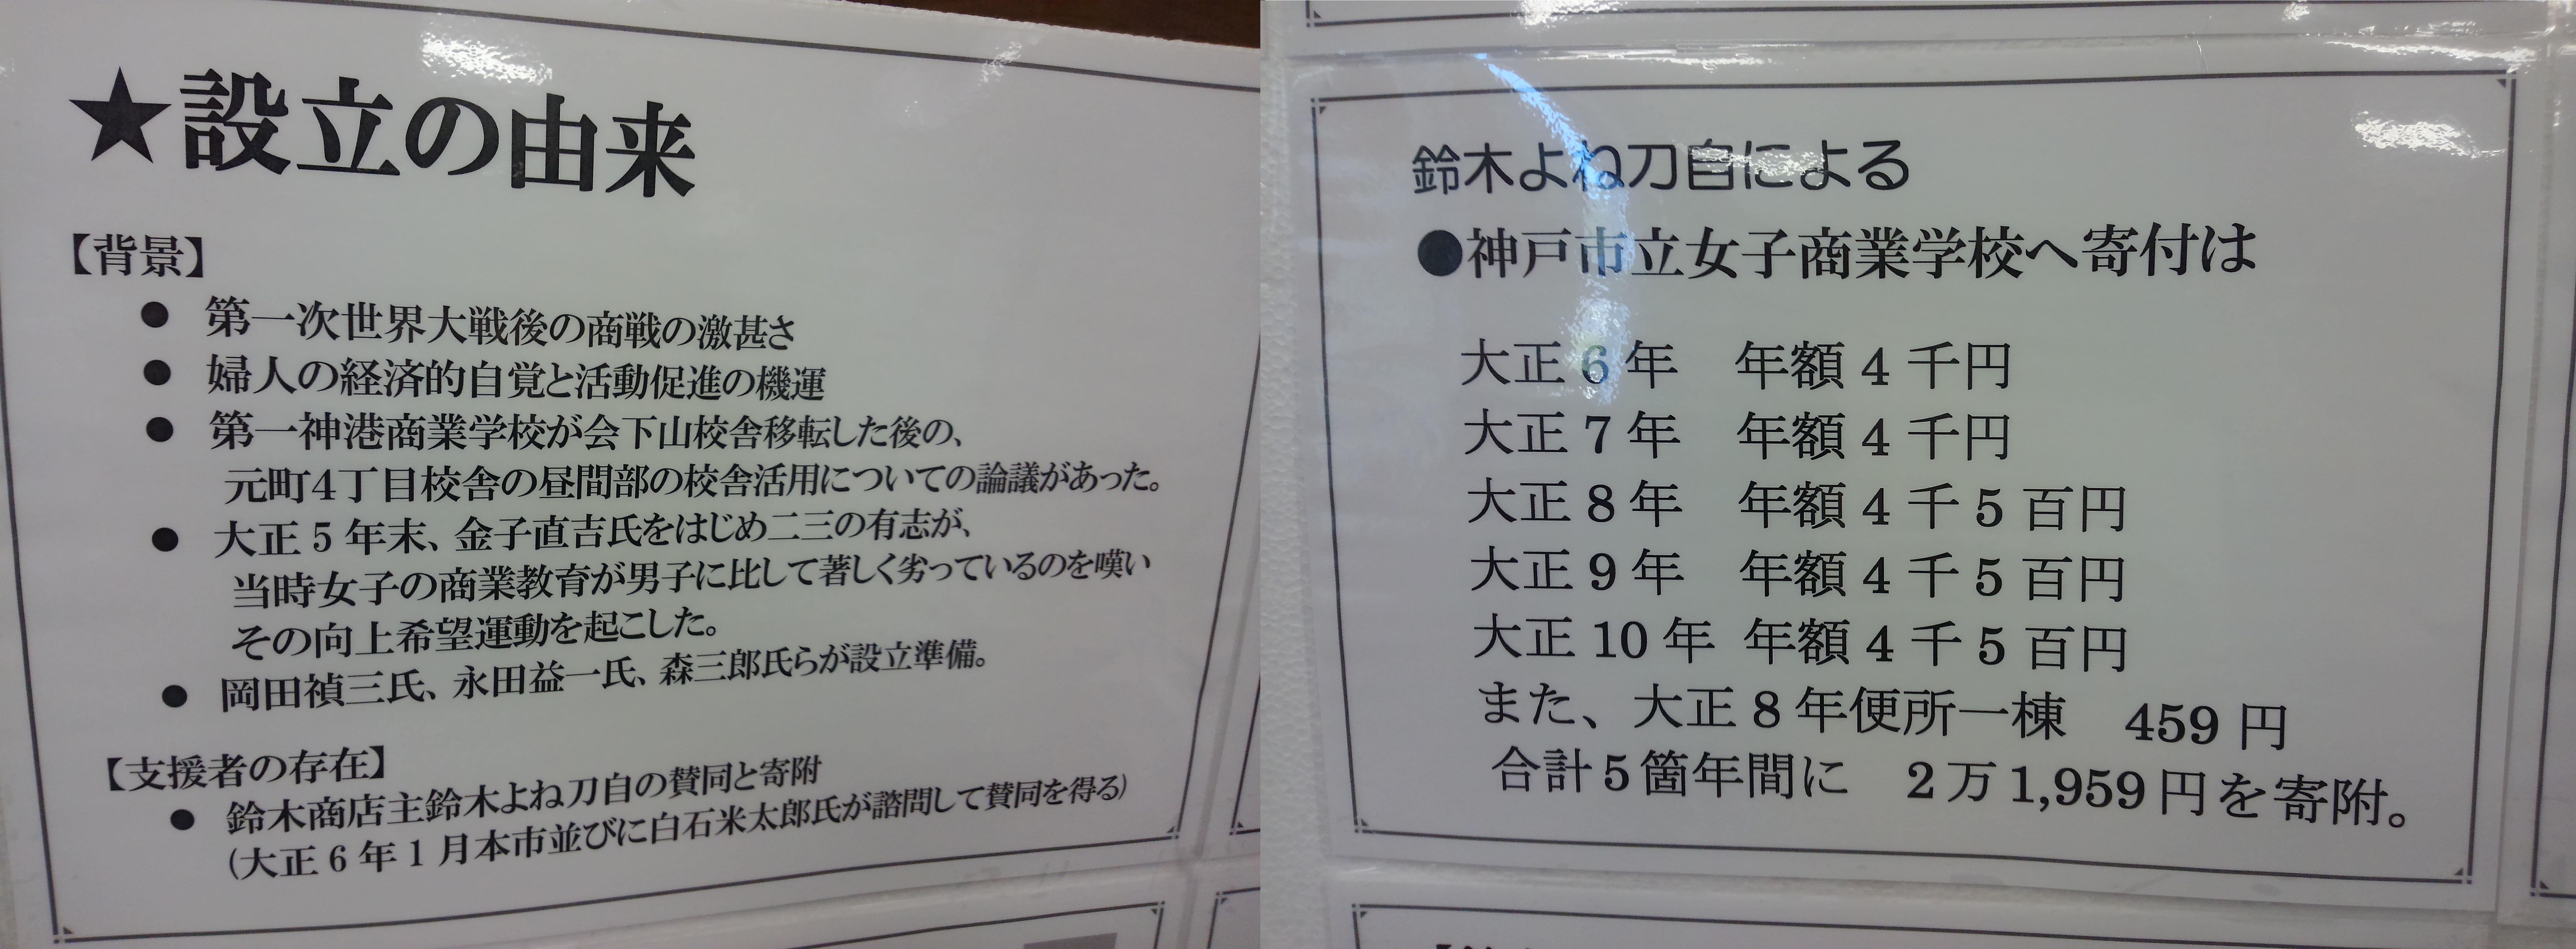 ★設立の由来
【背景】
● 第一次世界大戦後の商戦の激甚さ
● 婦人の経済的自覚と活動促進の機運
● 第一神港商業学校が会下山校舎移転した後の、
元町4丁目校舎の昼間部の校舎活用についての論議があった。
● 大正5年末、金子直吉氏をはじめ二三の有志が、
当時女子の商業教育が男子に比して著しく劣っているのを嘆い
その向上希望運動を起こした。
● 岡田禎三氏、永田益一氏、森三郎氏らが設立準備。
【支援者の存在】
● 鈴木商店主鈴木よね刀自の賛同と寄附
(大正6年1月本市並びに白石米太郎氏が諮問して賛同を得る)
鈴木よね刀自による
●神戸市立女子商業学校へ寄付は
大正6年 年額4千円
大正7年 年額4千円
大正8年 年額4千5百円
大正9年 年額4千5百円
大正10年 年額4千5百円
また、大正8年便所一棟 459円
合計5箇年間に 2万1,959円を寄附。